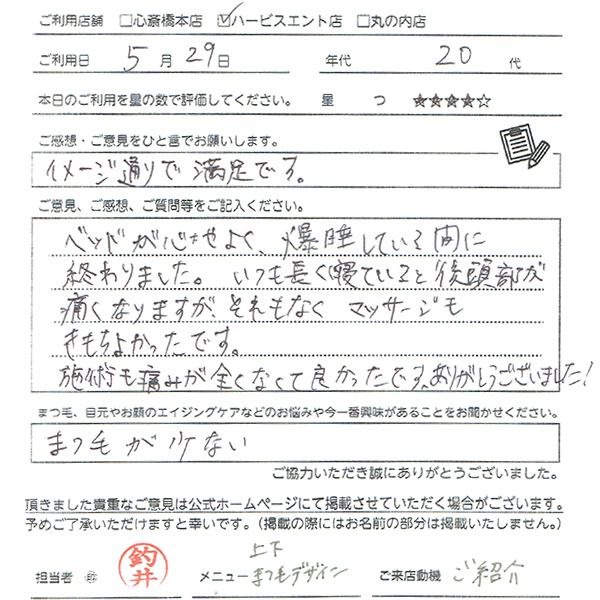 ご利用店舗 □心斎橋本店 ☑ハービスエント店 □丸の内店
ご利用日 5月29日 年代 20代
本日のご利用を星の数で評価してください。 星 つ ★★★★☆
ご感想・ご意見をひと言でお願いします。
イメージ通りで満足です。
ご意見、ご感想、ご質問等をご記入ください。
ベッドが心地よく、爆睡している間に
終わりました。いつも長く寝ていると後頭部が
痛くなりますが、それもなく マッサージも
きもちよかったです。
施術も痛みが全くなくて良かったです。ありがとうございました!
まつ毛、目元やお顔のエイジングケアなどのお悩みや今一番興味があることをお聞かせください。
まつ毛が少ない
ご協力いただき誠にありがとうございました。
頂きました貴重なご意見は公式ホームページにて掲載させていただく場合がございます。
予めご了承いただけますと幸いです。(掲載の際にはお名前の部分は掲載いたしません。)
担当者 ㊞ 釣井 メニュー 上下まつ毛デザイン ご来店動機 ご紹介